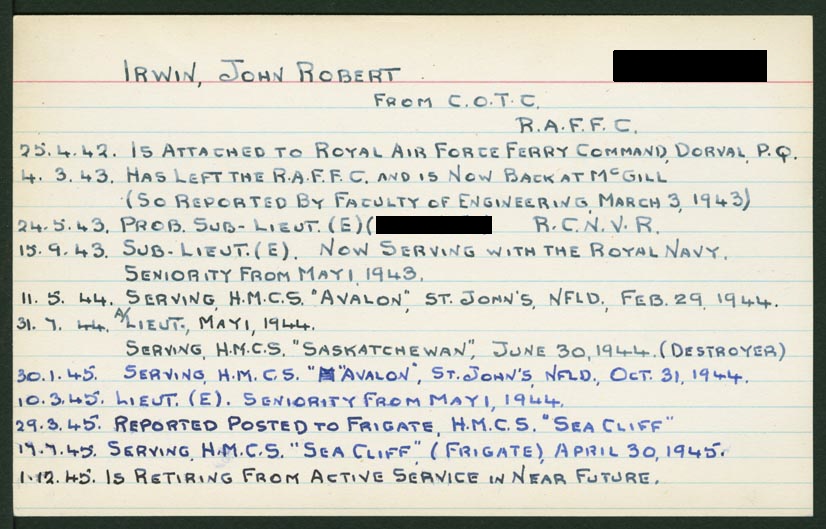 IRWIN, JOHN ROBERT
FROM C.O.T.C.
R.A.F.F.C.
25.4.42. IS ATTACHED TO ROYAL AIR FORCE FERRY COMMAND, DORVAL, P.Q.
4.3.43. HAS LEFT THE R.A.F.F.C. AND IS NOW BACK AT McGILL
(SO REPORTED BY FACULTY OF ENGINEERING, MARCH 3, 1943)
24.5.43. PROB. SUB-LIEUT. (E) ( R.C.N.V.R.
15.9.43. SUB-LIEUT. (E). NOW SERVING WITH THE ROYAL NAVY.
SENIORITY FROM MAY 1, 1943.
11.5.44. SERVING, H.M.C.S. "AVALON", ST. JOHN'S, NFLD., FEB. 29, 1944.
31.7.44. A/LIEUT., MAY 1, 1944.
SERVING, H.M.C.S. "SASKATCHEWAN", JUNE 30, 1944. (DESTROYER)
30.1.45. SERVING, H.M.C.S. "AVALON", ST. JOHN'S, NFLD., OCT. 31, 1944.
10.3.45. LIEUT. (E). SENIORITY FROM MAY 1, 1944.
29.3.45. REPORTED POSTED TO FRIGATE, H.M.C.S. "SEA CLIFF"
19.7.45. SERVING, H.M.C.S. "SEA CLIFF" (FRIGATE) APRIL 30, 1945.
1.12.45. IS RETIRING FROM ACTIVE SERVICE IN NEAR FUTURE.